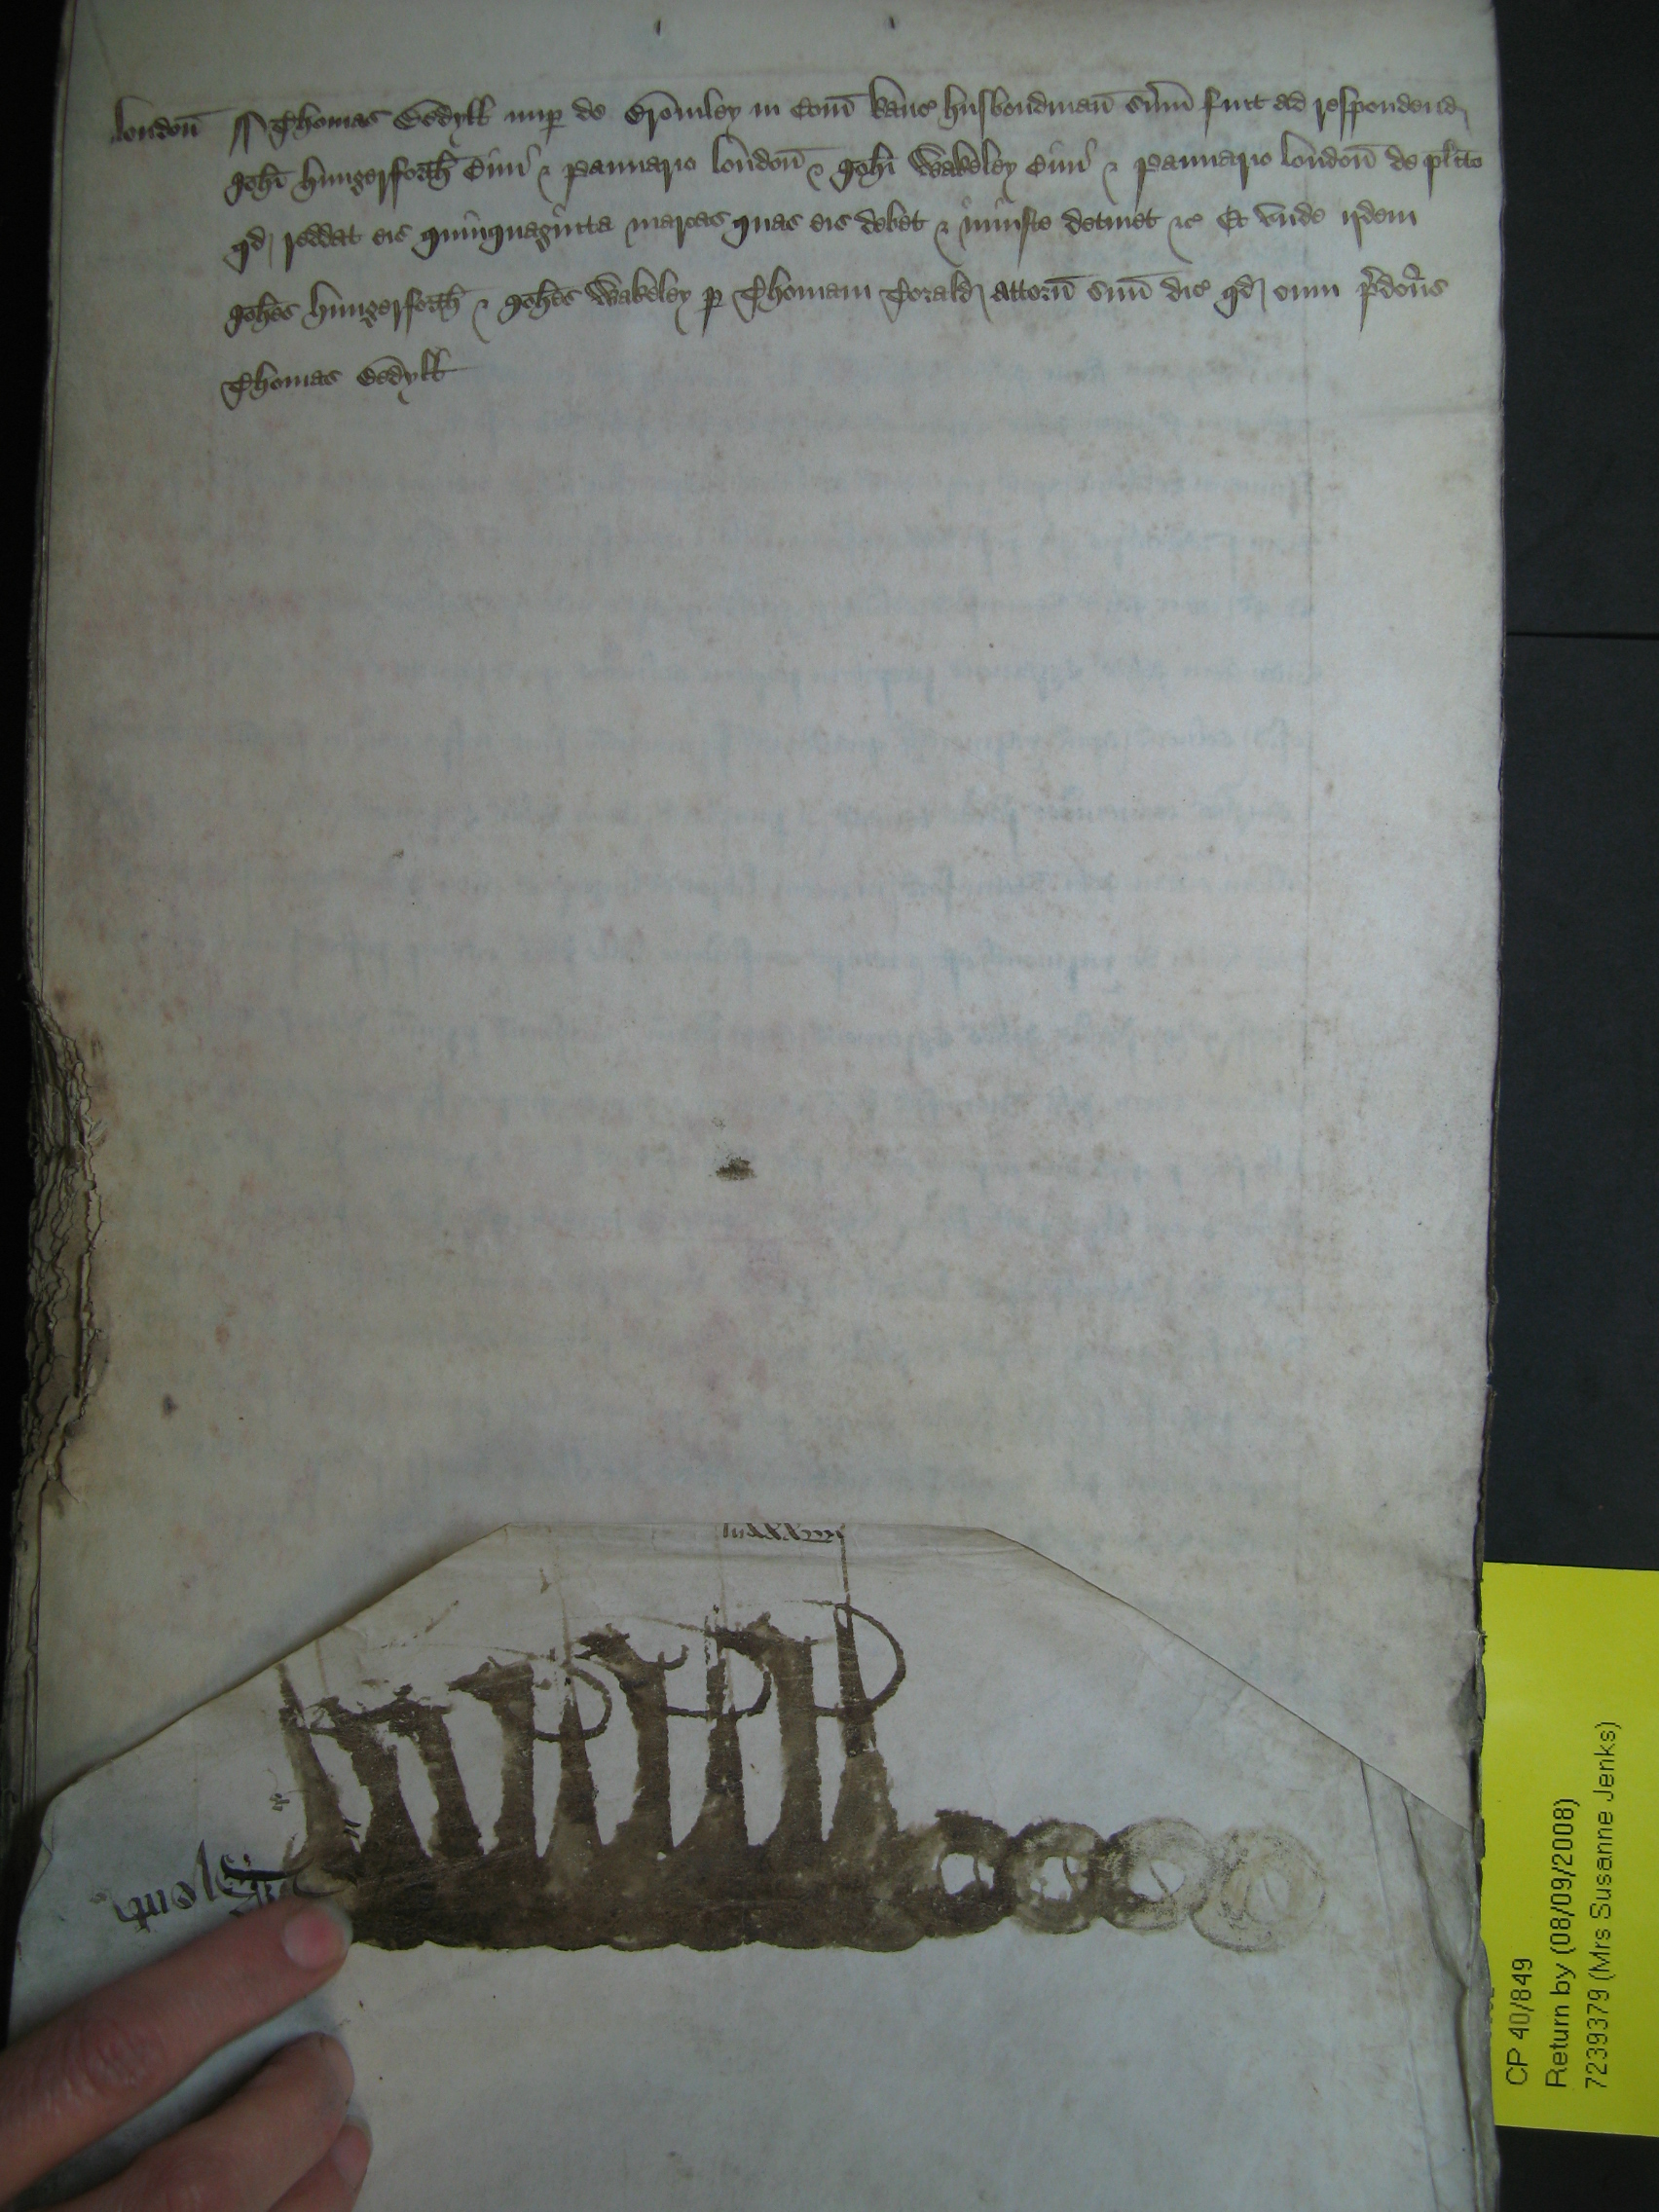 londoñ Thomas Gedyll nup de Bromley in Com̃ kanc husbondmañ sum̃ fuit ad respondend
Joh̃i hungerforth Ciui & pannario londoñ & Joh̃i Wakeley Ciui & pannario londoñ de plito
qd reddat eis quinquaginta marcas quas eis debet & iniuste detinet &c Et unde ijdem
Joh̃es hungerforth & Joh̃es Wakeley p Thomam Torald attorñ suũ dic qd cum p̃dcũs
Thomas Gedyll
CP 40/849
Return by (08/09/2008)
7239379 (Mrs Susanne Jenks)